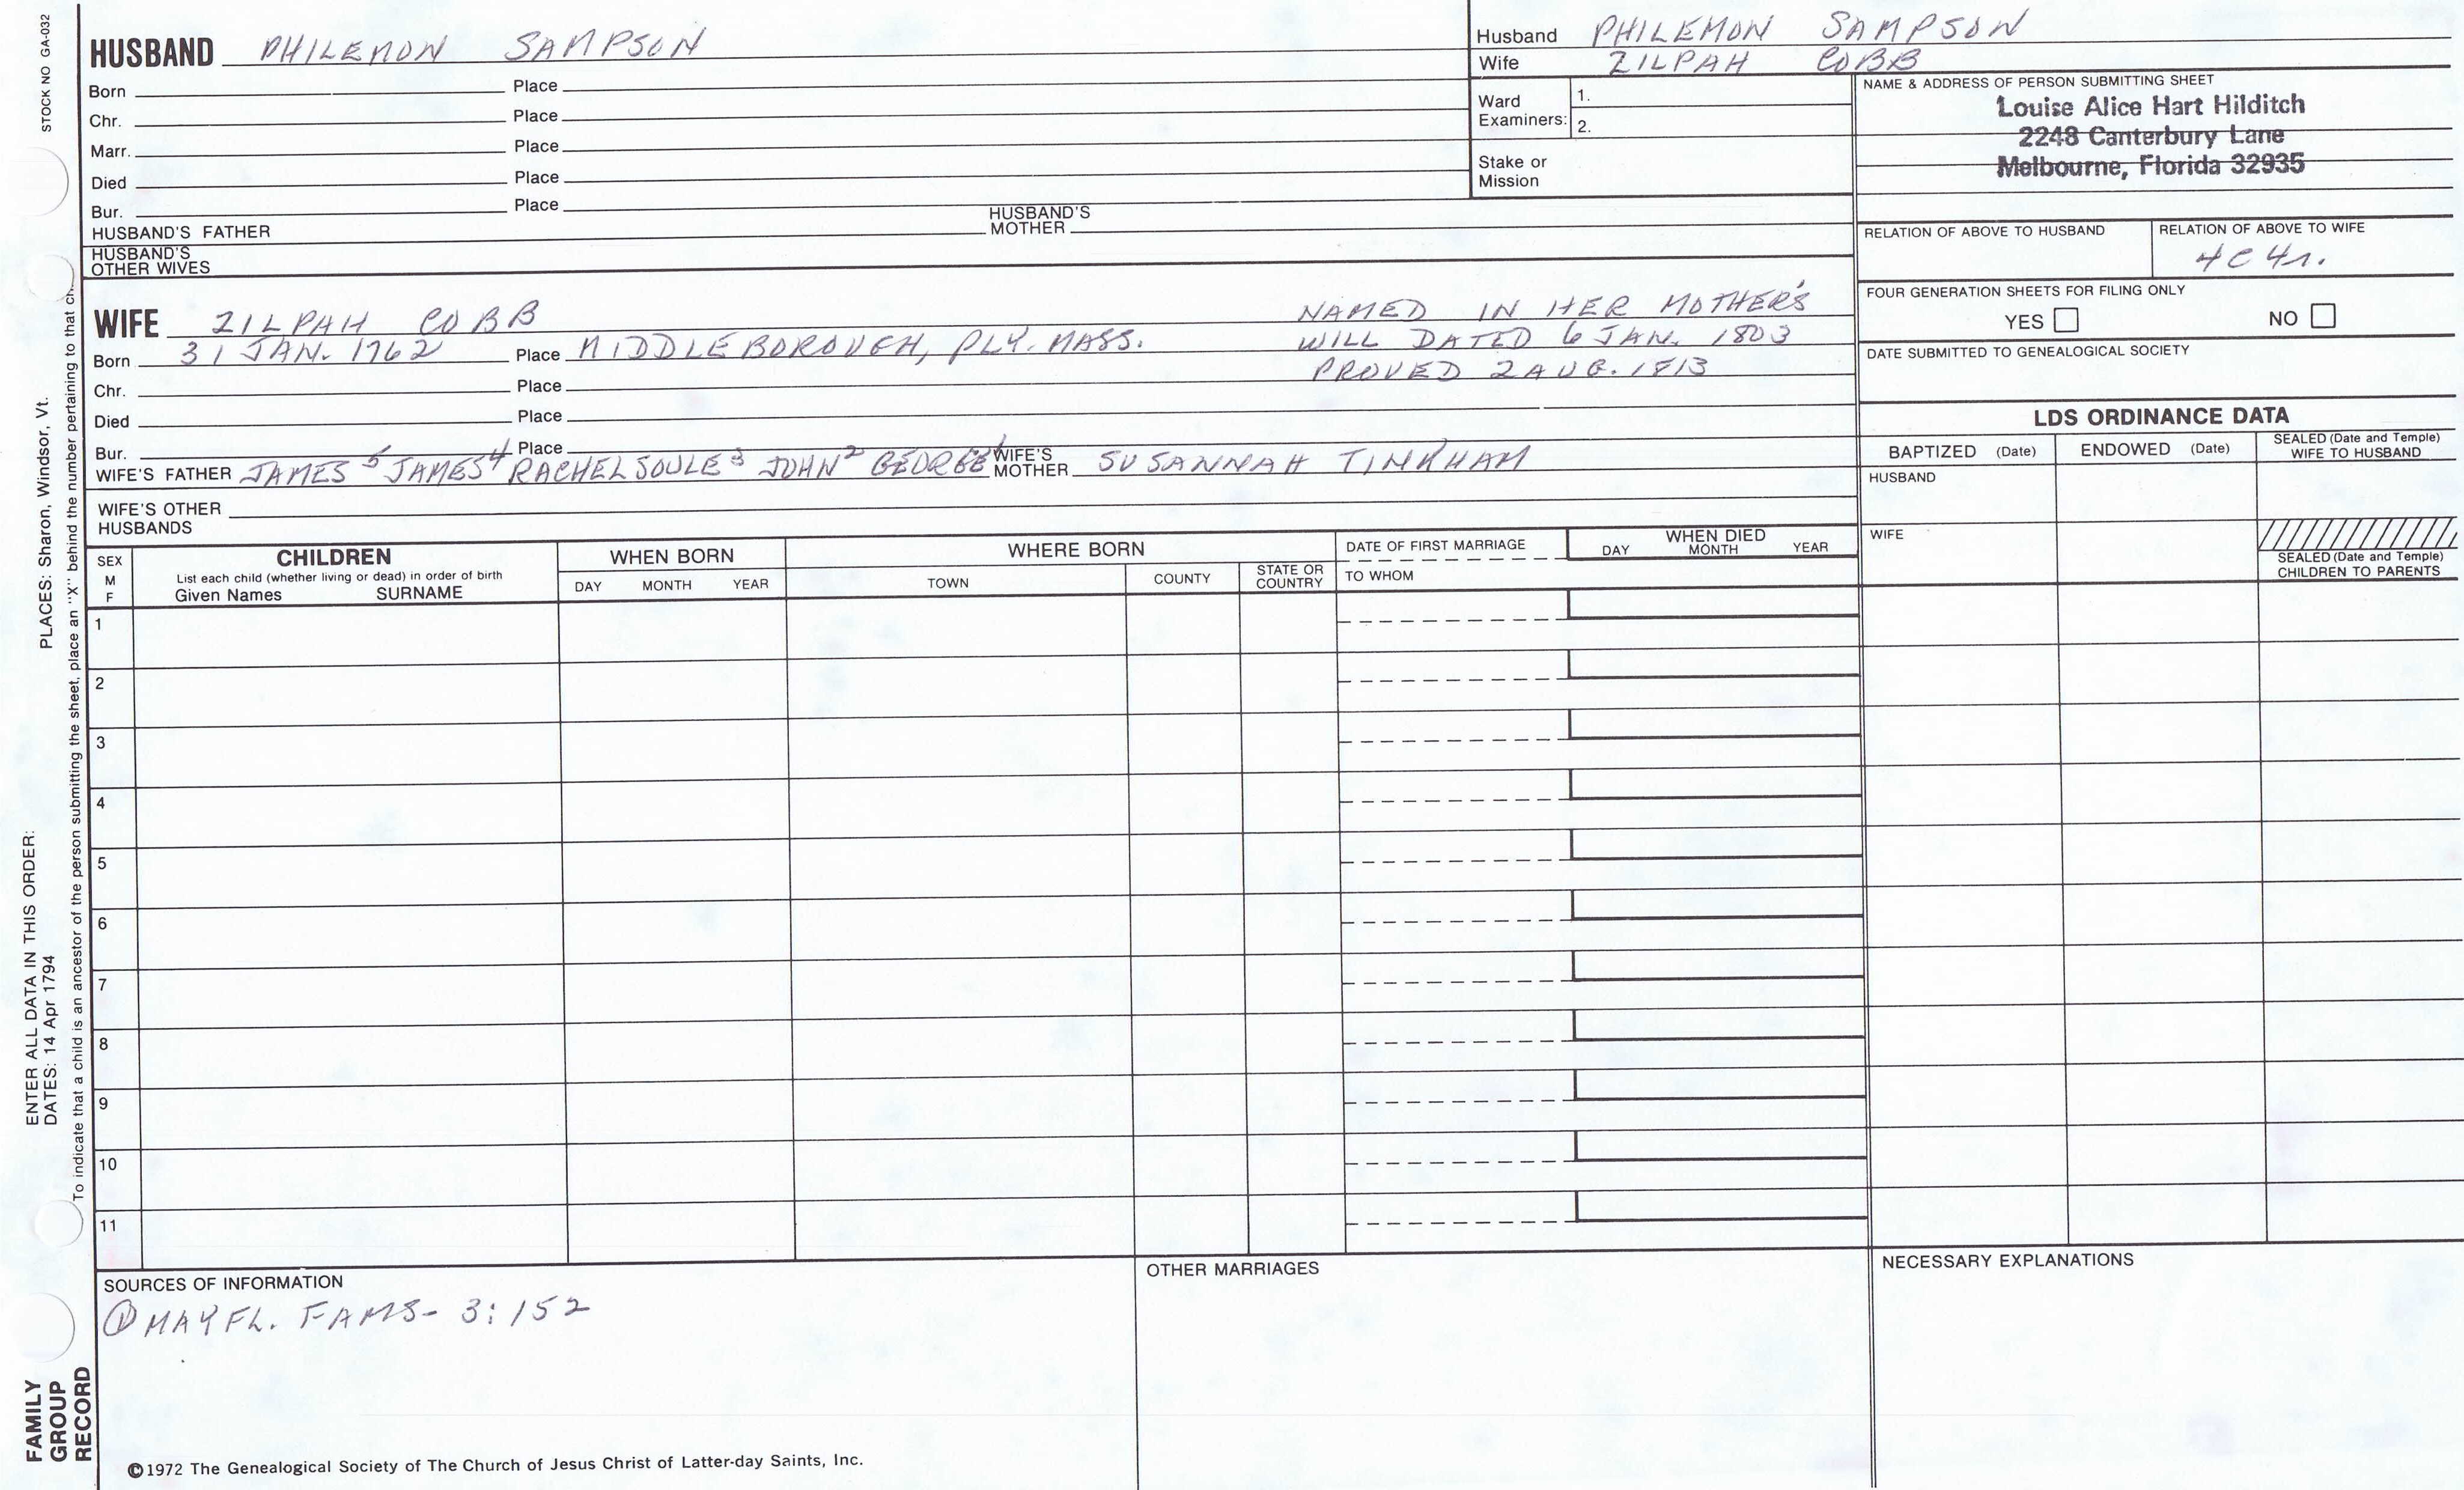 STOCK NO GA-032
HUSBAND PHILEMON SAMPSON
Born Place
Chr. Place
Marr. Place
Died Place
Bur. Place
HUSBAND'S FATHER HUSBAND'S MOTHER
HUSBAND'S OTHER WIVES
Husband PHILEMON SAMPSON
Wife ZILPAH COBB
Ward Examiners: 1.
2.
Stake or Mission
NAME & ADDRESS OF PERSON SUBMITTING SHEET
Louise Alice Hart Hilditch
2248 Canterbury Lane
Melbourne, Florida 32935
RELATION OF ABOVE TO HUSBAND
RELATION OF ABOVE TO WIFE
4C4r.
FOUR GENERATION SHEETS FOR FILING ONLY
YES NO
DATE SUBMITTED TO GENEALOGICAL SOCIETY
WIFE ZILPAH COBB
Born 31 JAN. 1762 Place MIDDLEBOROUGH, PLY. MASS.
NAMED IN HER MOTHER'S
WILL DATED 6 JAN. 1803
PROVED 2 AUG. 1813
Chr. Place
Died Place
Bur. Place
WIFE'S FATHER JAMES⁵ JAMES⁴ RACHEL SOULE³ JOHN² GEORGE¹ WIFE'S MOTHER SUSANNAH TINKHAM
WIFE'S OTHER HUSBANDS
LDS ORDINANCE DATA
BAPTIZED (Date) ENDOWED (Date) SEALED (Date and Temple) WIFE TO HUSBAND
HUSBAND
WIFE
SEALED (Date and Temple) CHILDREN TO PARENTS
SEX M F
CHILDREN
List each child (whether living or dead) in order of birth
Given Names SURNAME
WHEN BORN
DAY MONTH YEAR
WHERE BORN
TOWN COUNTY STATE OR COUNTRY
DATE OF FIRST MARRIAGE
TO WHOM
WHEN DIED
DAY MONTH YEAR
1
2
3
4
5
6
7
8
9
10
11
SOURCES OF INFORMATION
① MAYFL. FAMS- 3:152
OTHER MARRIAGES
NECESSARY EXPLANATIONS
©1972 The Genealogical Society of The Church of Jesus Christ of Latter-day Saints, Inc.
FAMILY GROUP RECORD
ENTER ALL DATA IN THIS ORDER:
DATES: 14 Apr 1794 PLACES: Sharon, Windsor, Vt.
To indicate that a child is an ancestor of the person submitting the sheet, place an "X" behind the number pertaining to that